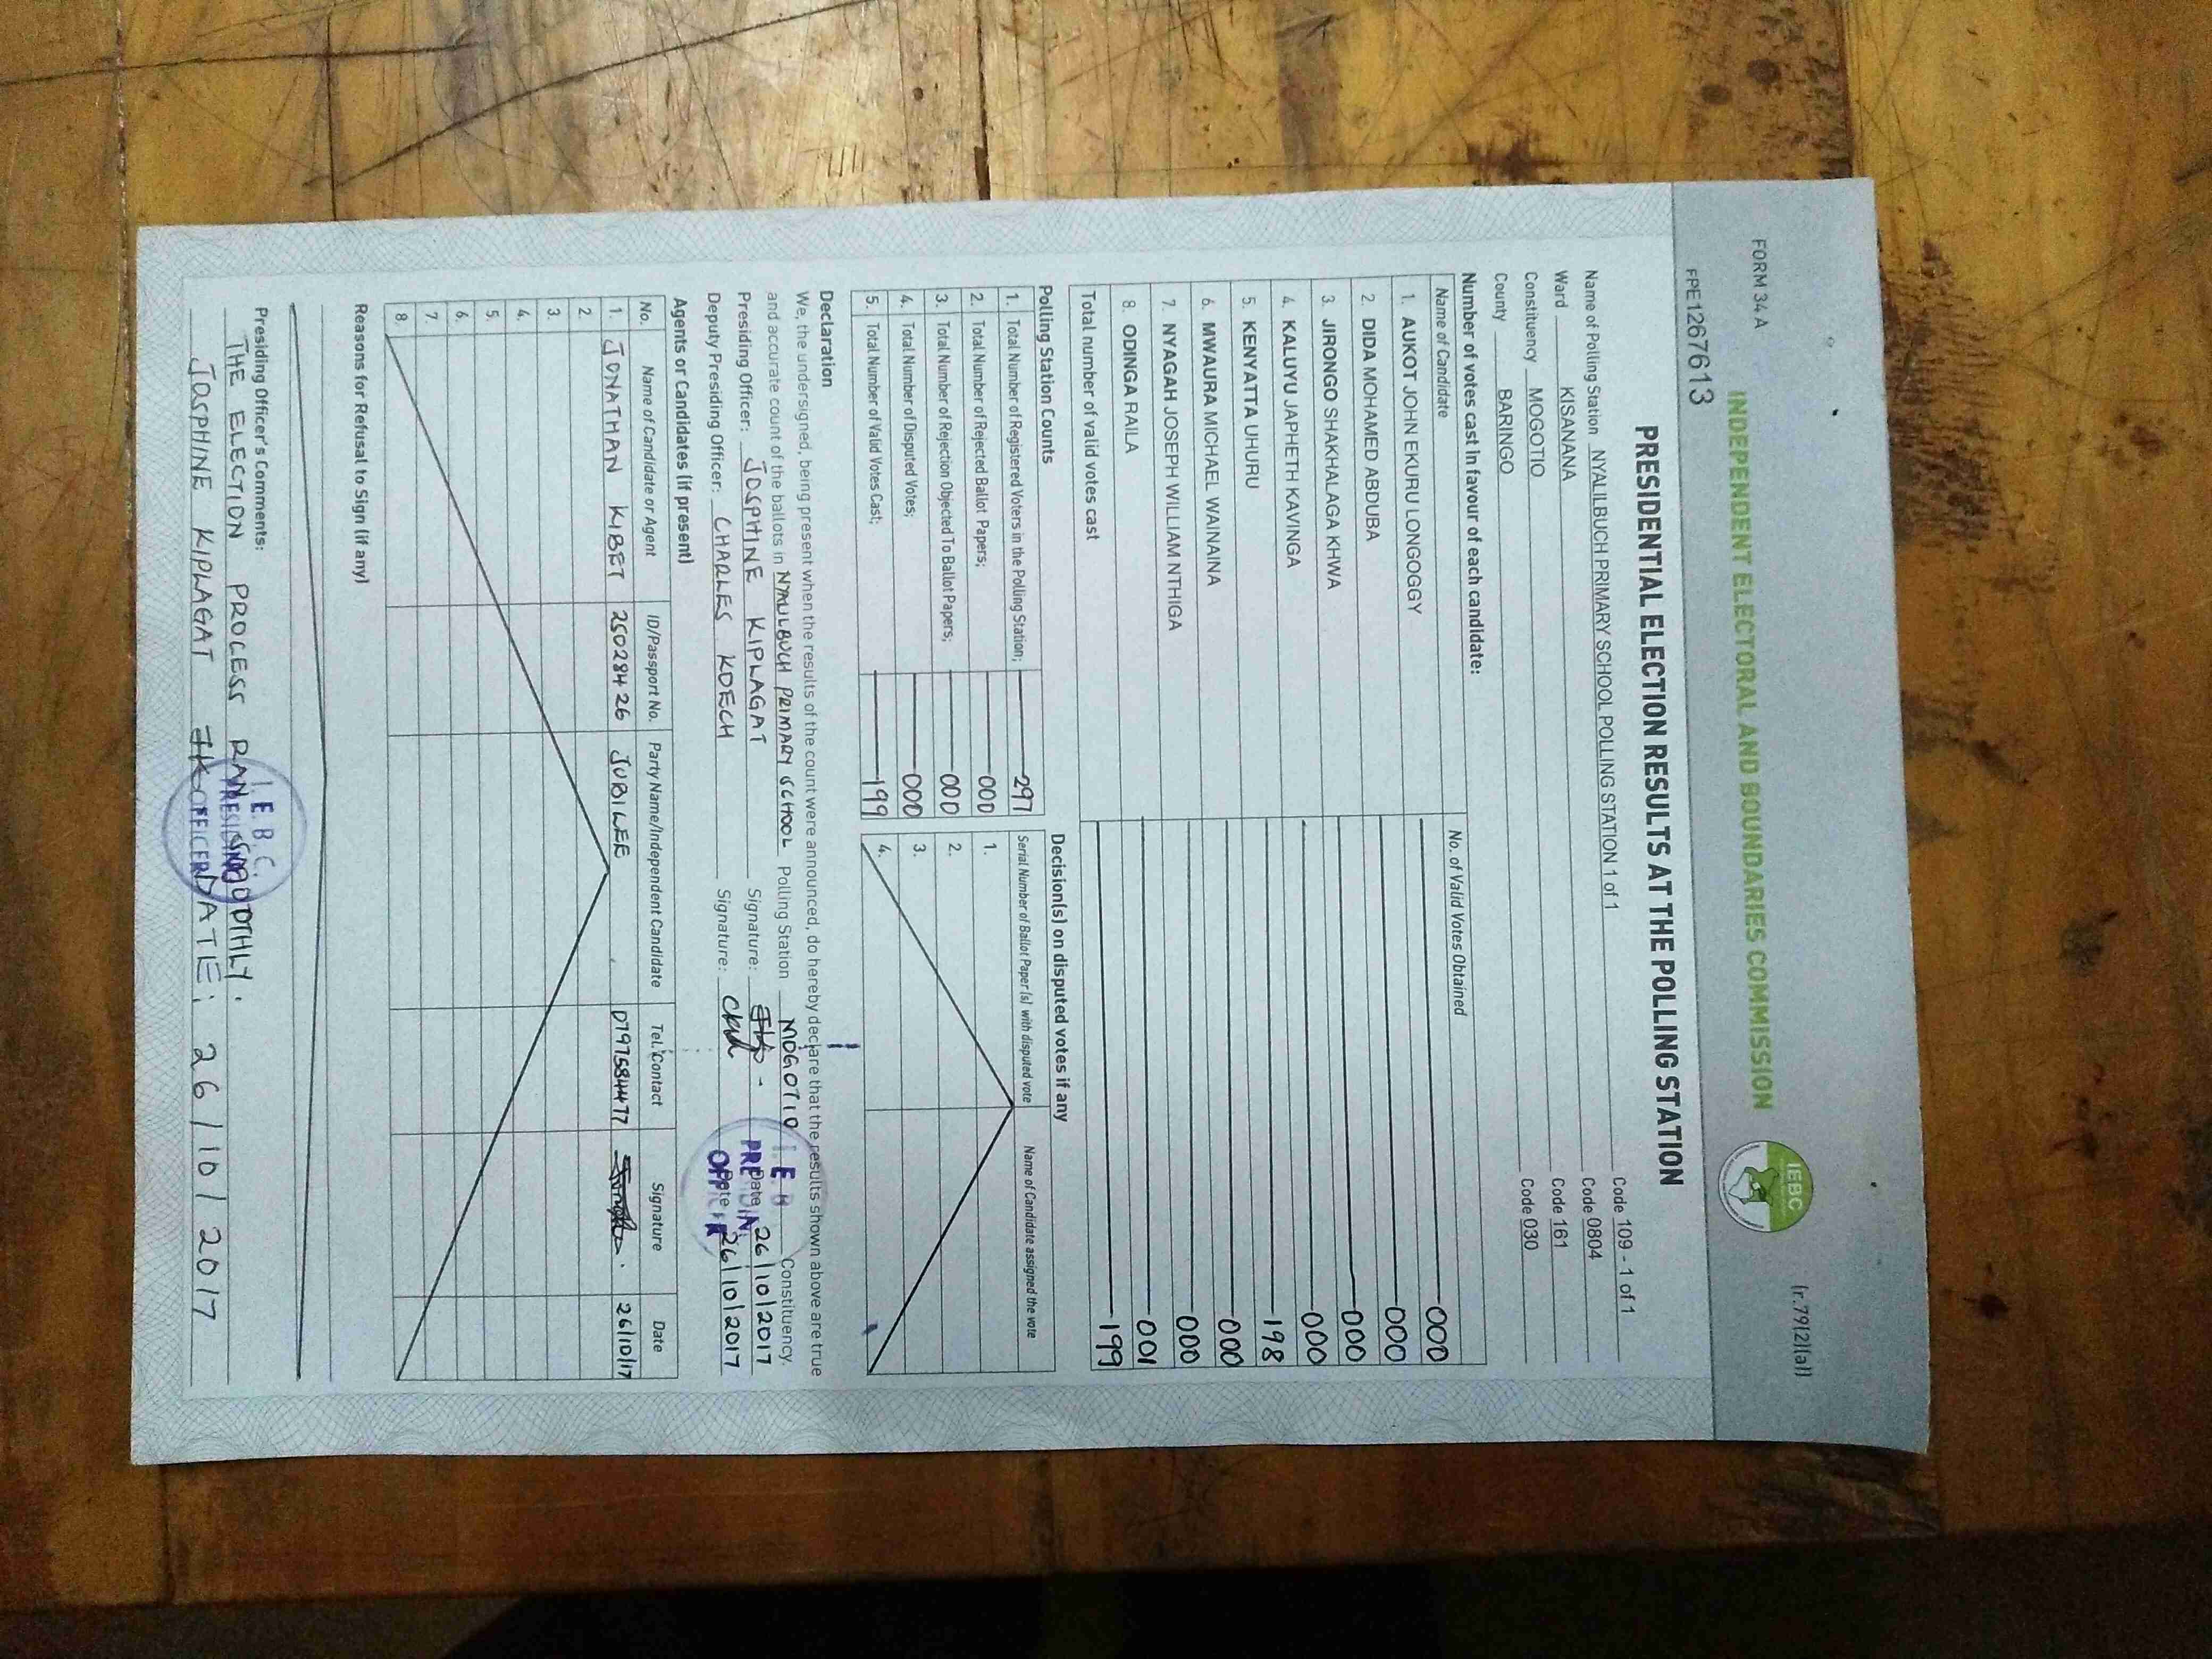 FORM 34 A
(r.79(2)(a))
INDEPENDENT ELECTORAL AND BOUNDARIES COMMISSION
IEBC
FPE1267613
PRESIDENTIAL ELECTION RESULTS AT THE POLLING STATION
Name of Polling Station NYALILBUCH PRIMARY SCHOOL POLLING STATION 1 of 1 Code 109 - 1 of 1
Ward KISANANA Code 0804
Constituency MOGOTIO Code 161
County BARINGO Code 030
Number of votes cast in favour of each candidate:
Name of Candidate No. of Valid Votes Obtained
1. AUKOT JOHN EKURU LONGOGGY 000
2. DIDA MOHAMED ABDUBA 000
3. JIRONGO SHAKHALAGA KHWA 000
4. KALUYU JAPHETH KAVINGA 000
5. KENYATTA UHURU 198
6. MWAURA MICHAEL WAINAINA 000
7. NYAGAH JOSEPH WILLIAM NTHIGA 000
8. ODINGA RAILA 001
Total number of valid votes cast 199
Polling Station Counts
1. Total Number of Registered Voters in the Polling Station; 297
2. Total Number of Rejected Ballot Papers; 000
3. Total Number of Rejection Objected To Ballot Papers; 000
4. Total Number of Disputed Votes; 000
5. Total Number of Valid Votes Cast; 199
Decision(s) on disputed votes if any
Serial Number of Ballot Paper(s) with disputed vote Name of Candidate assigned the vote
1.
2.
3.
4.
Declaration
We, the undersigned, being present when the results of the count were announced, do hereby declare that the results shown above are true
and accurate count of the ballots in NYALILBUCH PRIMARY SCHOOL Polling Station MOGOTIO Constituency.
Presiding Officer: JOSPHINE KIPLAGAT Signature: Date 26/10/2017
Deputy Presiding Officer: CHARLES KOECH Signature: Date 26/10/2017
Agents or Candidates (if present)
No. Name of Candidate or Agent ID/Passport No. Party Name/Independent Candidate Tel. Contact Signature Date
1. JONATHAN KIBET 25028426 JUBILEE 0797584477 26/10/17
2.
3.
4.
5.
6.
7.
8.
Reasons for Refusal to Sign (if any)
Presiding Officer's Comments:
THE ELECTION PROCESS RAN SMOOTHLY.
JOSPHINE KIPLAGAT DATE: 26/10/2017
I.E.B.C.
PRESIDING
OFFICER